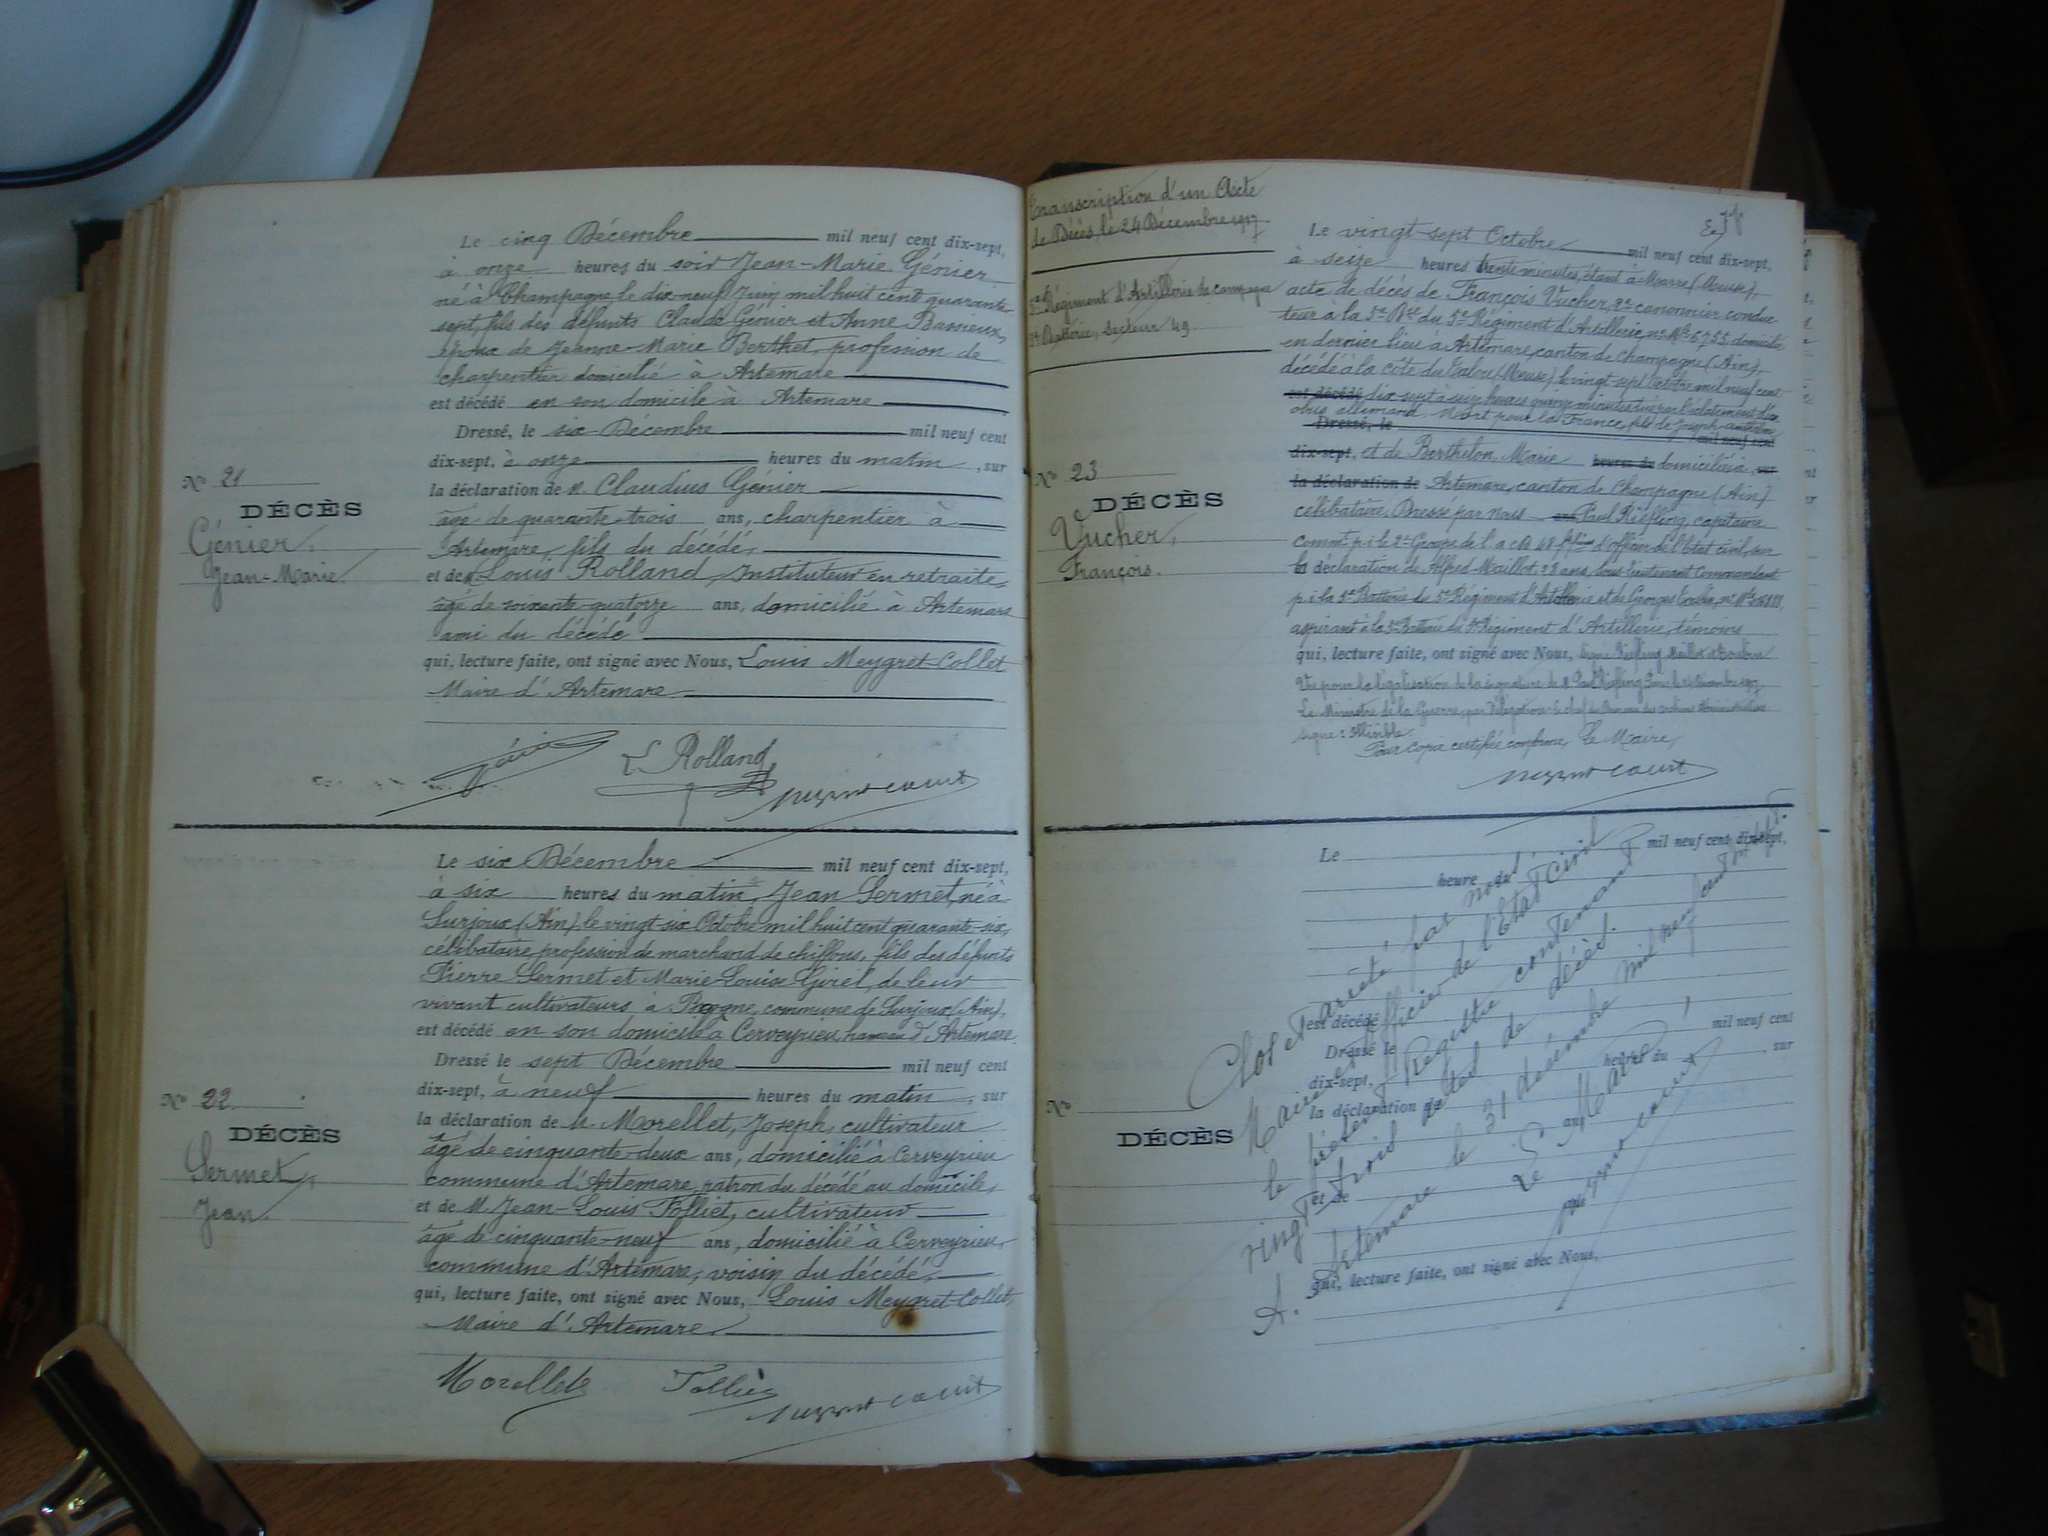 Le cinq Décembre mil neuf cent dix-sept,
à onze heures du soir Jean-Marie Génier
né à Champagne le dix-neuf Juin mil huit cent quarante-
sept, fils des défunts Claude Génier et Anne Bassieux,
époux de Jeanne-Marie Berthet, profession de
charpentier domicilié à Artemare
est décédé en son domicile à Artemare
Dressé, le six Décembre mil neuf cent
dix-sept, à onze heures du matin, sur
la déclaration de M. Claudius Génier
âgé de quarante-trois ans, charpentier à
Artemare, fils du décédé,
et de Louis Rolland, Instituteur en retraite,
âgé de soixante-quatorze ans, domicilié à Artemare
ami du décédé
qui, lecture faite, ont signé avec Nous, Louis Meygret-Collet
Maire d'Artemare
No 21
DÉCÈS
Génier,
Jean-Marie.
L. Rolland
Le six Décembre mil neuf cent dix-sept,
à six heures du matin, Jean Sermet, né à
Surjoux (Ain) le vingt-six Octobre mil huit cent quarante-six,
célibataire, profession de marchand de chiffons, fils des défunts
Pierre Sermet et Marie-Louise Girel, de leur
vivant cultivateurs à commune de Surjoux (Ain),
est décédé en son domicile à Cerveyrieu, hameau d'Artemare.
Dressé le sept Décembre mil neuf cent
dix-sept, à neuf heures du matin, sur
la déclaration de M. Morellet, Joseph, cultivateur
âgé de cinquante-deux ans, domicilié à Cerveyrieu
commune d'Artemare, patron du décédé au domicile,
et de M. Jean-Louis Folliet, cultivateur
âgé de cinquante-neuf ans, domicilié à Cerveyrieu,
commune d'Artemare, voisin du décédé,
qui, lecture faite, ont signé avec Nous, Louis Meygret-Collet,
Maire d'Artemare.
No 22
DÉCÈS
Sermet,
Jean.
Morellet
Transcription d'un Acte
de Décès, le 24 Décembre 1917
5e Régiment d'Artillerie de campagne
5e Batterie, Secteur 49
Le vingt-sept Octobre mil neuf cent dix-sept,
à seize heures trente minutes, étant à Marre (Meuse),
acte de décès de François Vucher, 2e canonnier conduc-
teur à la 5e Bie du 5e Régiment d'Artillerie, no Mle 6755, domicilié
en dernier lieu à Artemare, canton de Champagne (Ain),
décédé à la côte du Talou (Meuse) le vingt-sept Octobre mil neuf cent
est décédé dix-sept à heures quinze minutes, tué par l'éclatement d'un
obus allemand. Mort pour la France, fils de Joseph
Dressé, le mil neuf cent
dix-sept, et de Berthelon Marie heures du domiciliés à, sur
la déclaration de Artemare, canton de Champagne (Ain)
célibataire. Dressé par nous Paul Kiefling, capitaine
Officier de l'Etat civil, sur
la déclaration de Alfred Maillot, 33 ans, Sous-lieutenant Commandant
p.i. la 5e Batterie du 5e Régiment d'Artillerie et de Georges
aspirant à la 5e Batterie du 5e Régiment d'Artillerie, témoins
qui, lecture faite, ont signé avec Nous,
Vu pour la légalisation de la signature de M. Paul Kiefling
Le Ministre de la Guerre, par délégation le chef du Bureau des Archives Administratives
Pour copie certifiée conforme, Le Maire,
No 23
DÉCÈS
Vucher,
François.
Le mil neuf cent dix-sept,
heure du
est décédé
Dressé le mil neuf cent
dix-sept, heures du , sur
la déclaration de
ans,
et de
qui, lecture faite, ont signé avec Nous,
No
DÉCÈS
Clos et arrêté par nous,
Maire et Officier de l'Etat Civil
le présent Registre contenant
vingt-trois actes de décès.
A. Artemare le 31 décembre mil neuf cent dix-sept
Le Maire,